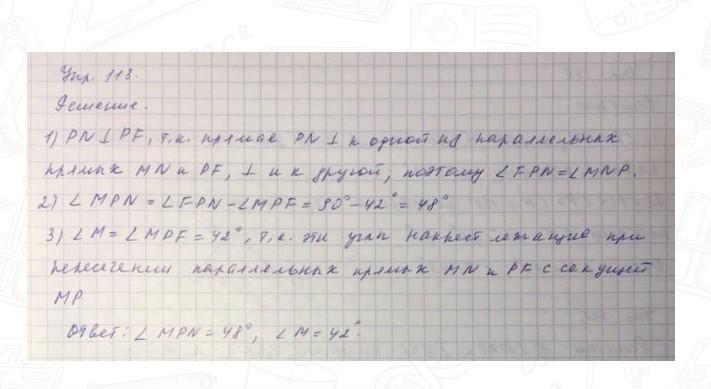 Упр. 113.
Решение.
1) PN ⊥ PF, т.к. прямая PN ⊥ к одной из параллельных
прямых MN и PF, ⊥ и к другой, поэтому ∠FPN = ∠MNP.
2) ∠MPN = ∠FPN - ∠MPF = 90° - 42° = 48°
3) ∠M = ∠MPF = 42°, т.к. эти углы накрест лежащие при
пересечении параллельных прямых MN и PF с секущей
MP
Ответ: ∠MPN = 48°, ∠M = 42°.